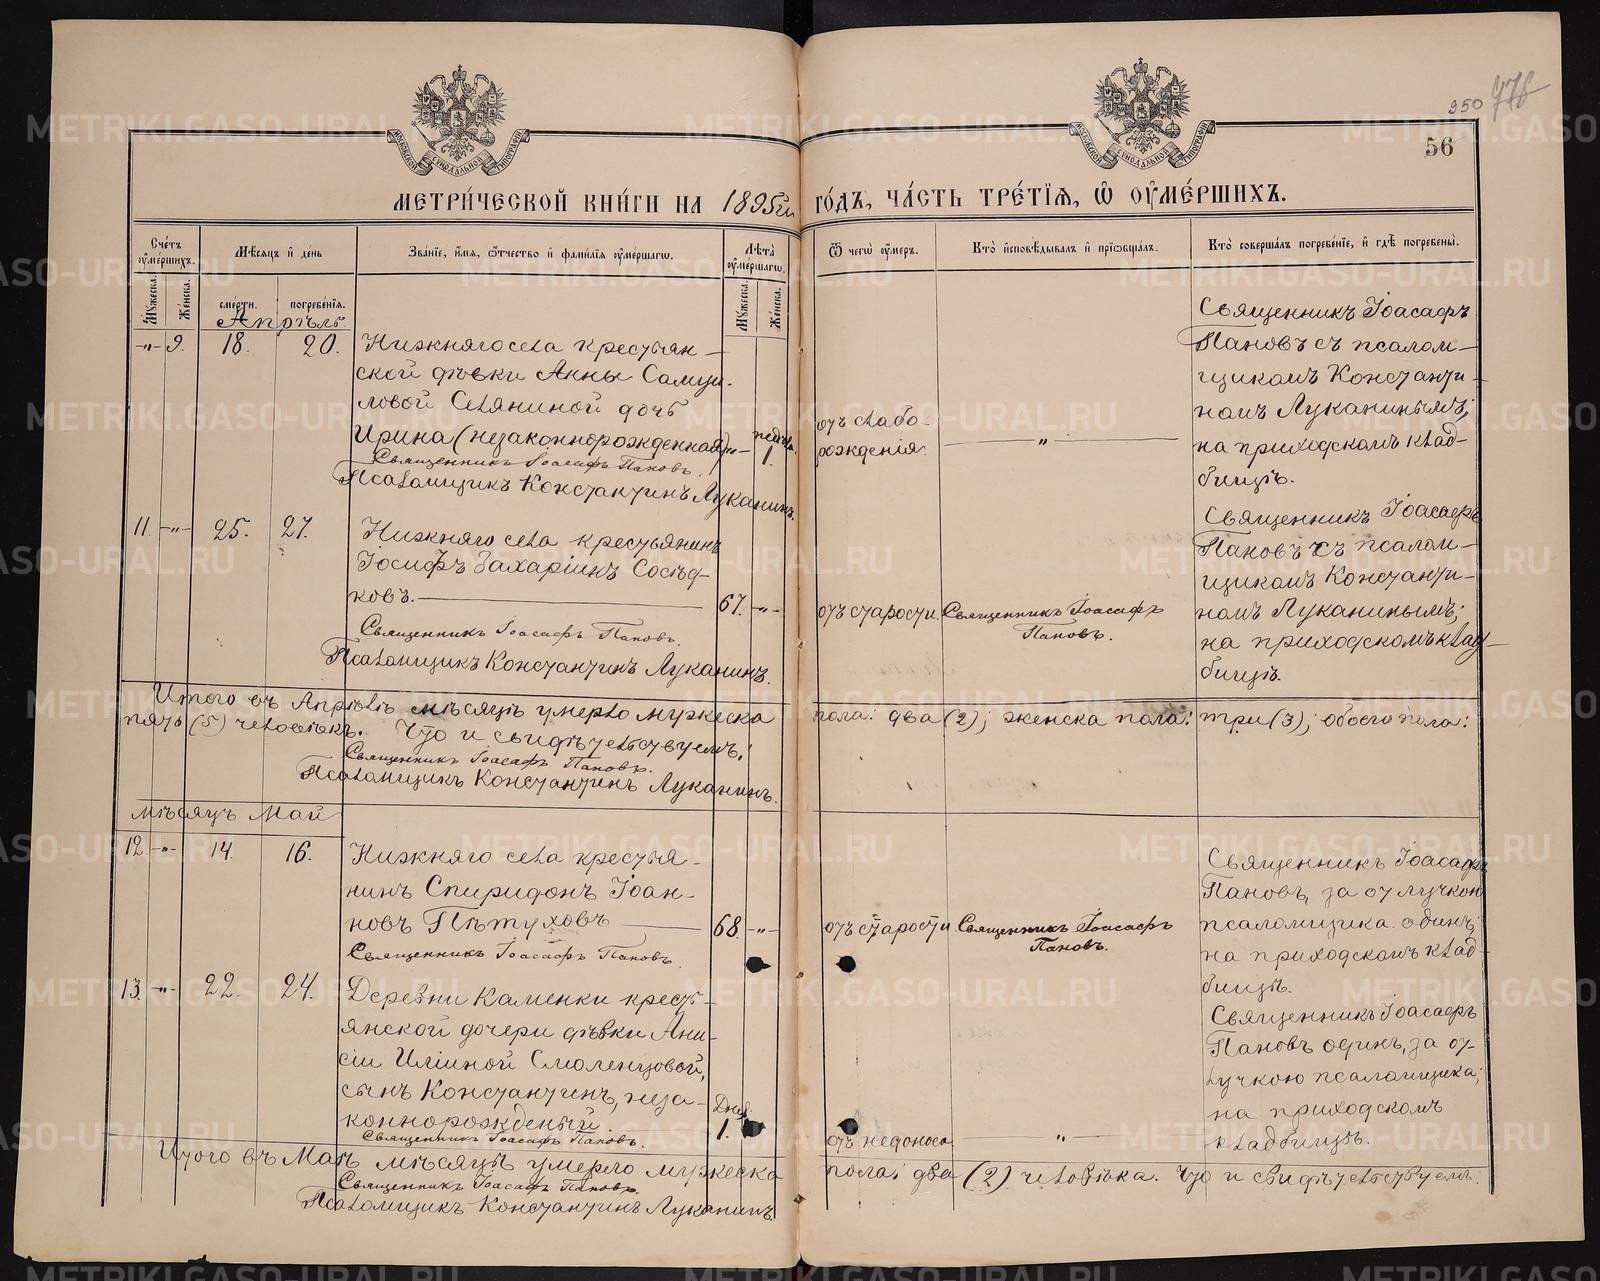 950 976
56
МЕТРИ́ЧЕСКОЙ КНИ́ГИ НА 1895й ГО́ДЪ, ЧА́СТЬ ТРЕ́ТЇѦ, Ѡ ОУ҆МЕ́РШИХЪ.
Сче́тъ оу҆ме́ршихъ.
Мѣ́сяцъ и҆ де́нь
Зва́нїе, и҆́мя, ѻ҆́тчество и҆ фами́лїя оу҆ме́ршагѡ.
Лѣ́та оу҆ме́ршагѡ.
Ѿ чегѡ̀ оу҆́меръ.
Кто̀ и҆сповѣ́дывалъ и҆ прїѡбща́лъ.
Кто̀ соверша́лъ погребе́нїе, и҆ гдѣ̀ погребены̀.
Му́жеска.
Же́нска.
сме́рти.
погребе́нїя.
Му́жеска.
Же́нска.
Апрѣль.
-"- 9. 18. 20.
Нижняго села крестьян-
ской дѣвки Анны Самуи-
ловой Селяниной дочь
Ирина (незаконнорожденная) -"- недѣля 1.
Священникъ Іоасафъ Пановъ.
Псаломщикъ Константинъ Луканинъ.
отъ слабо-
рожденія.
"
Священникъ Іоасафъ
Пановъ съ псалом-
щикомъ Константи-
номъ Луканинымъ;
на приходскомъ клад-
бищѣ.
11. -"- 25. 27.
Нижняго села крестьянинъ
Іосифъ Захаріинъ Сосѣд-
ковъ. 67. -"-
Священникъ Іоасафъ Пановъ.
Псаломщикъ Константинъ Луканинъ.
отъ старости.
Священникъ Іоасафъ
Пановъ.
Священникъ Іоасафъ
Пановъ съ псалом-
щикомъ Константи-
номъ Луканинымъ;
на приходскомъ клад-
бищѣ.
Итого въ Апрѣлѣ мѣсяцѣ умерло мужеска пола: два (2); женска пола: три (3); обоего пола:
пять (5) человѣкъ. Что и свидѣтельствуемъ:
Священникъ Іоасафъ Пановъ.
Псаломщикъ Константинъ Луканинъ.
мѣсяцъ Май
12. -"- 14. 16.
Нижняго села крестья-
нинъ Спиридонъ Іоан-
новъ Пѣтуховъ 68. -"-
Священникъ Іоасафъ Пановъ.
отъ старости
Священникъ Іоасафъ
Пановъ.
Священникъ Іоасафъ
Пановъ, за отлучкою
псаломщика одинъ;
на приходскомъ клад-
бищѣ.
13. -"- 22. 24.
Деревни Каменки кресть-
янской дочери дѣвки Ани-
сіи Иліиной Смоленцовой,
сынъ Константинъ, неза-
коннорожденый Дней 1.
Священникъ Іоасафъ Пановъ.
отъ недоноса
"
Священникъ Іоасафъ
Пановъ одинъ, за от-
лучкою псаломщика;
на приходскомъ
кладбищѣ.
Итого въ Маѣ мѣсяцѣ умерло мужеска пола: два (2) человѣка. Что и свидѣтельствуемъ.
Священникъ Іоасафъ Пановъ.
Псаломщикъ Константинъ Луканинъ.